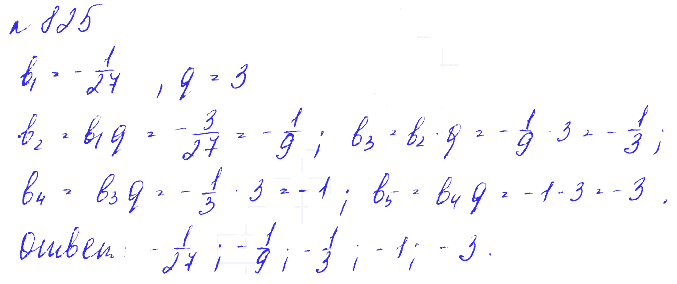 № 825
b₁ = -1/27, q = 3
b₂ = b₁q = -3/27 = -1/9; b₃ = b₂·q = -1/9·3 = -1/3;
b₄ = b₃q = -1/3·3 = -1; b₅ = b₄q = -1·3 = -3.
Ответ: -1/27; -1/9; -1/3; -1; -3.